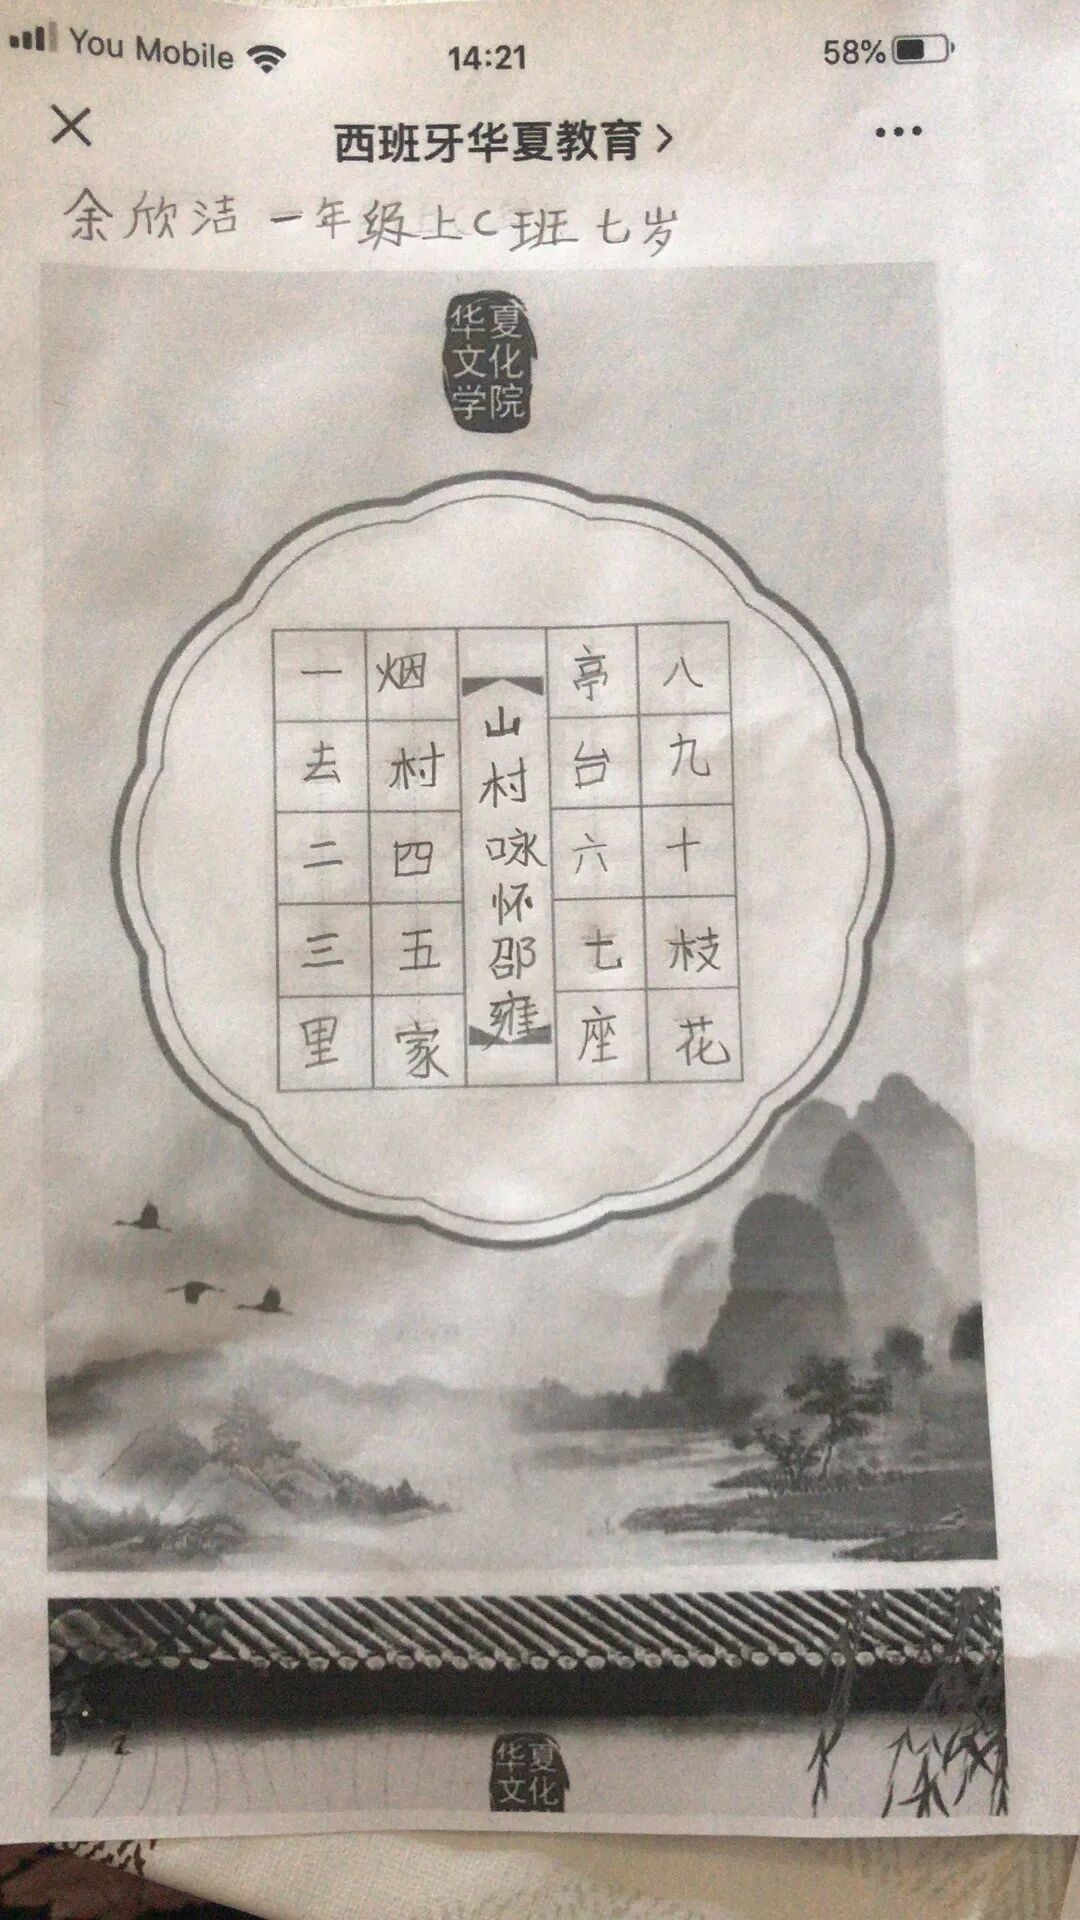 You Mobile 14:21 58%
西班牙华夏教育
余欣洁 一年级上C班 七岁
华夏
文化
学院
一去二三里
烟村四五家
山村咏怀邵雍
亭台六七座
八九十枝花
华夏
文化